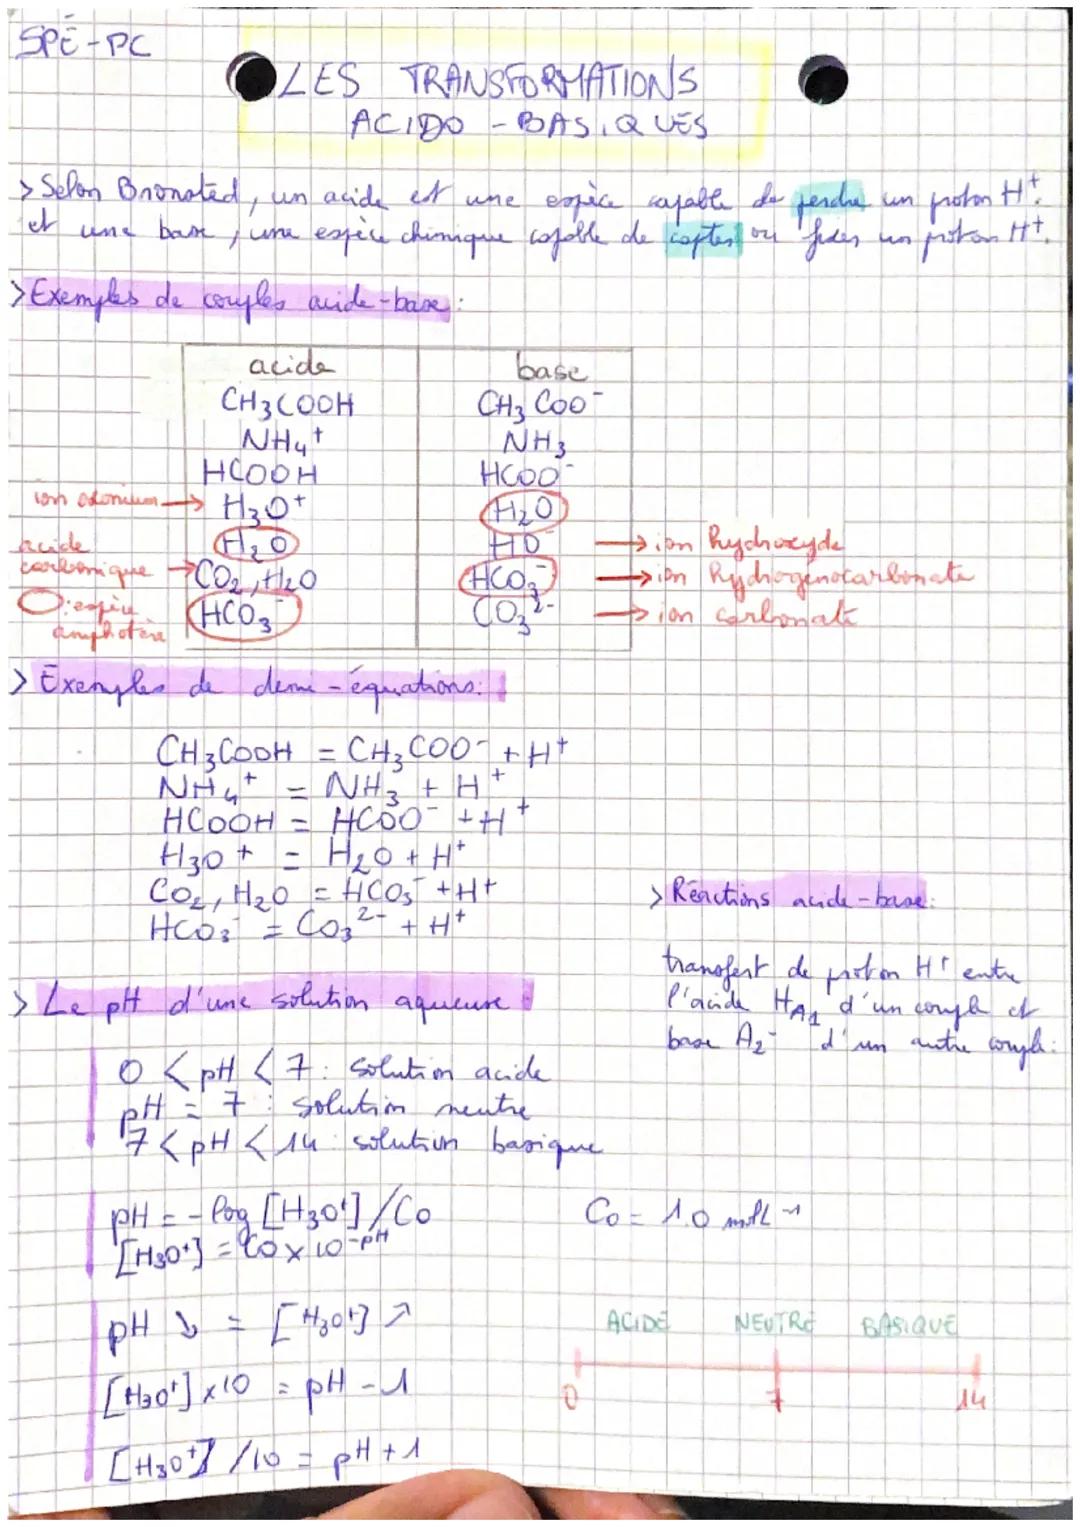 SPÉ-PC
LES TRANSFORMATIONS
ACIDO-BASIQUES
> Selon Bronsted, un acide est une espèce capable de perdre un proton H⁺.
et une base, une espèce chimique capable de capter ou fixer un proton H⁺.
> Exemples de couples acide-base :
acide base
CH₃COOH CH₃COO⁻
NH₄⁺ NH₃
HCOOH HCOO⁻
ion oxonium → H₃O⁺ H₂O
H₂O HO⁻ → ion hydroxyde
acide carbonique → CO₂,H₂O HCO₃⁻ → ion hydrogénocarbonate
HCO₃⁻ CO₃²⁻ → ion carbonate
: espèce
amphotère
> Exemples de demi-équations :
CH₃COOH = CH₃COO⁻ + H⁺
NH₄⁺ = NH₃ + H⁺
HCOOH = HCOO⁻ + H⁺
H₃O⁺ = H₂O + H⁺
CO₂, H₂O = HCO₃⁻ + H⁺
HCO₃⁻ = CO₃²⁻ + H⁺
> Réactions acide-base :
transfert de proton H⁺ entre
l'acide HA₁ d'un couple et
base A₂⁻ d'un autre couple :
> Le pH d'une solution aqueuse :
0 < pH < 7 : solution acide
pH = 7 : solution neutre
7 < pH < 14 : solution basique
pH = -log [H₃O⁺]/C₀ C₀ = 1.0 mol.L⁻¹
[H₃O⁺] = C₀ × 10⁻ᵖᴴ
pH ↘ = [H₃O⁺] ↗
[H₃O⁺] ×10 = pH - 1
[H₃O⁺] /10 = pH + 1
ACIDE NEUTRE BASIQUE
0 7 14